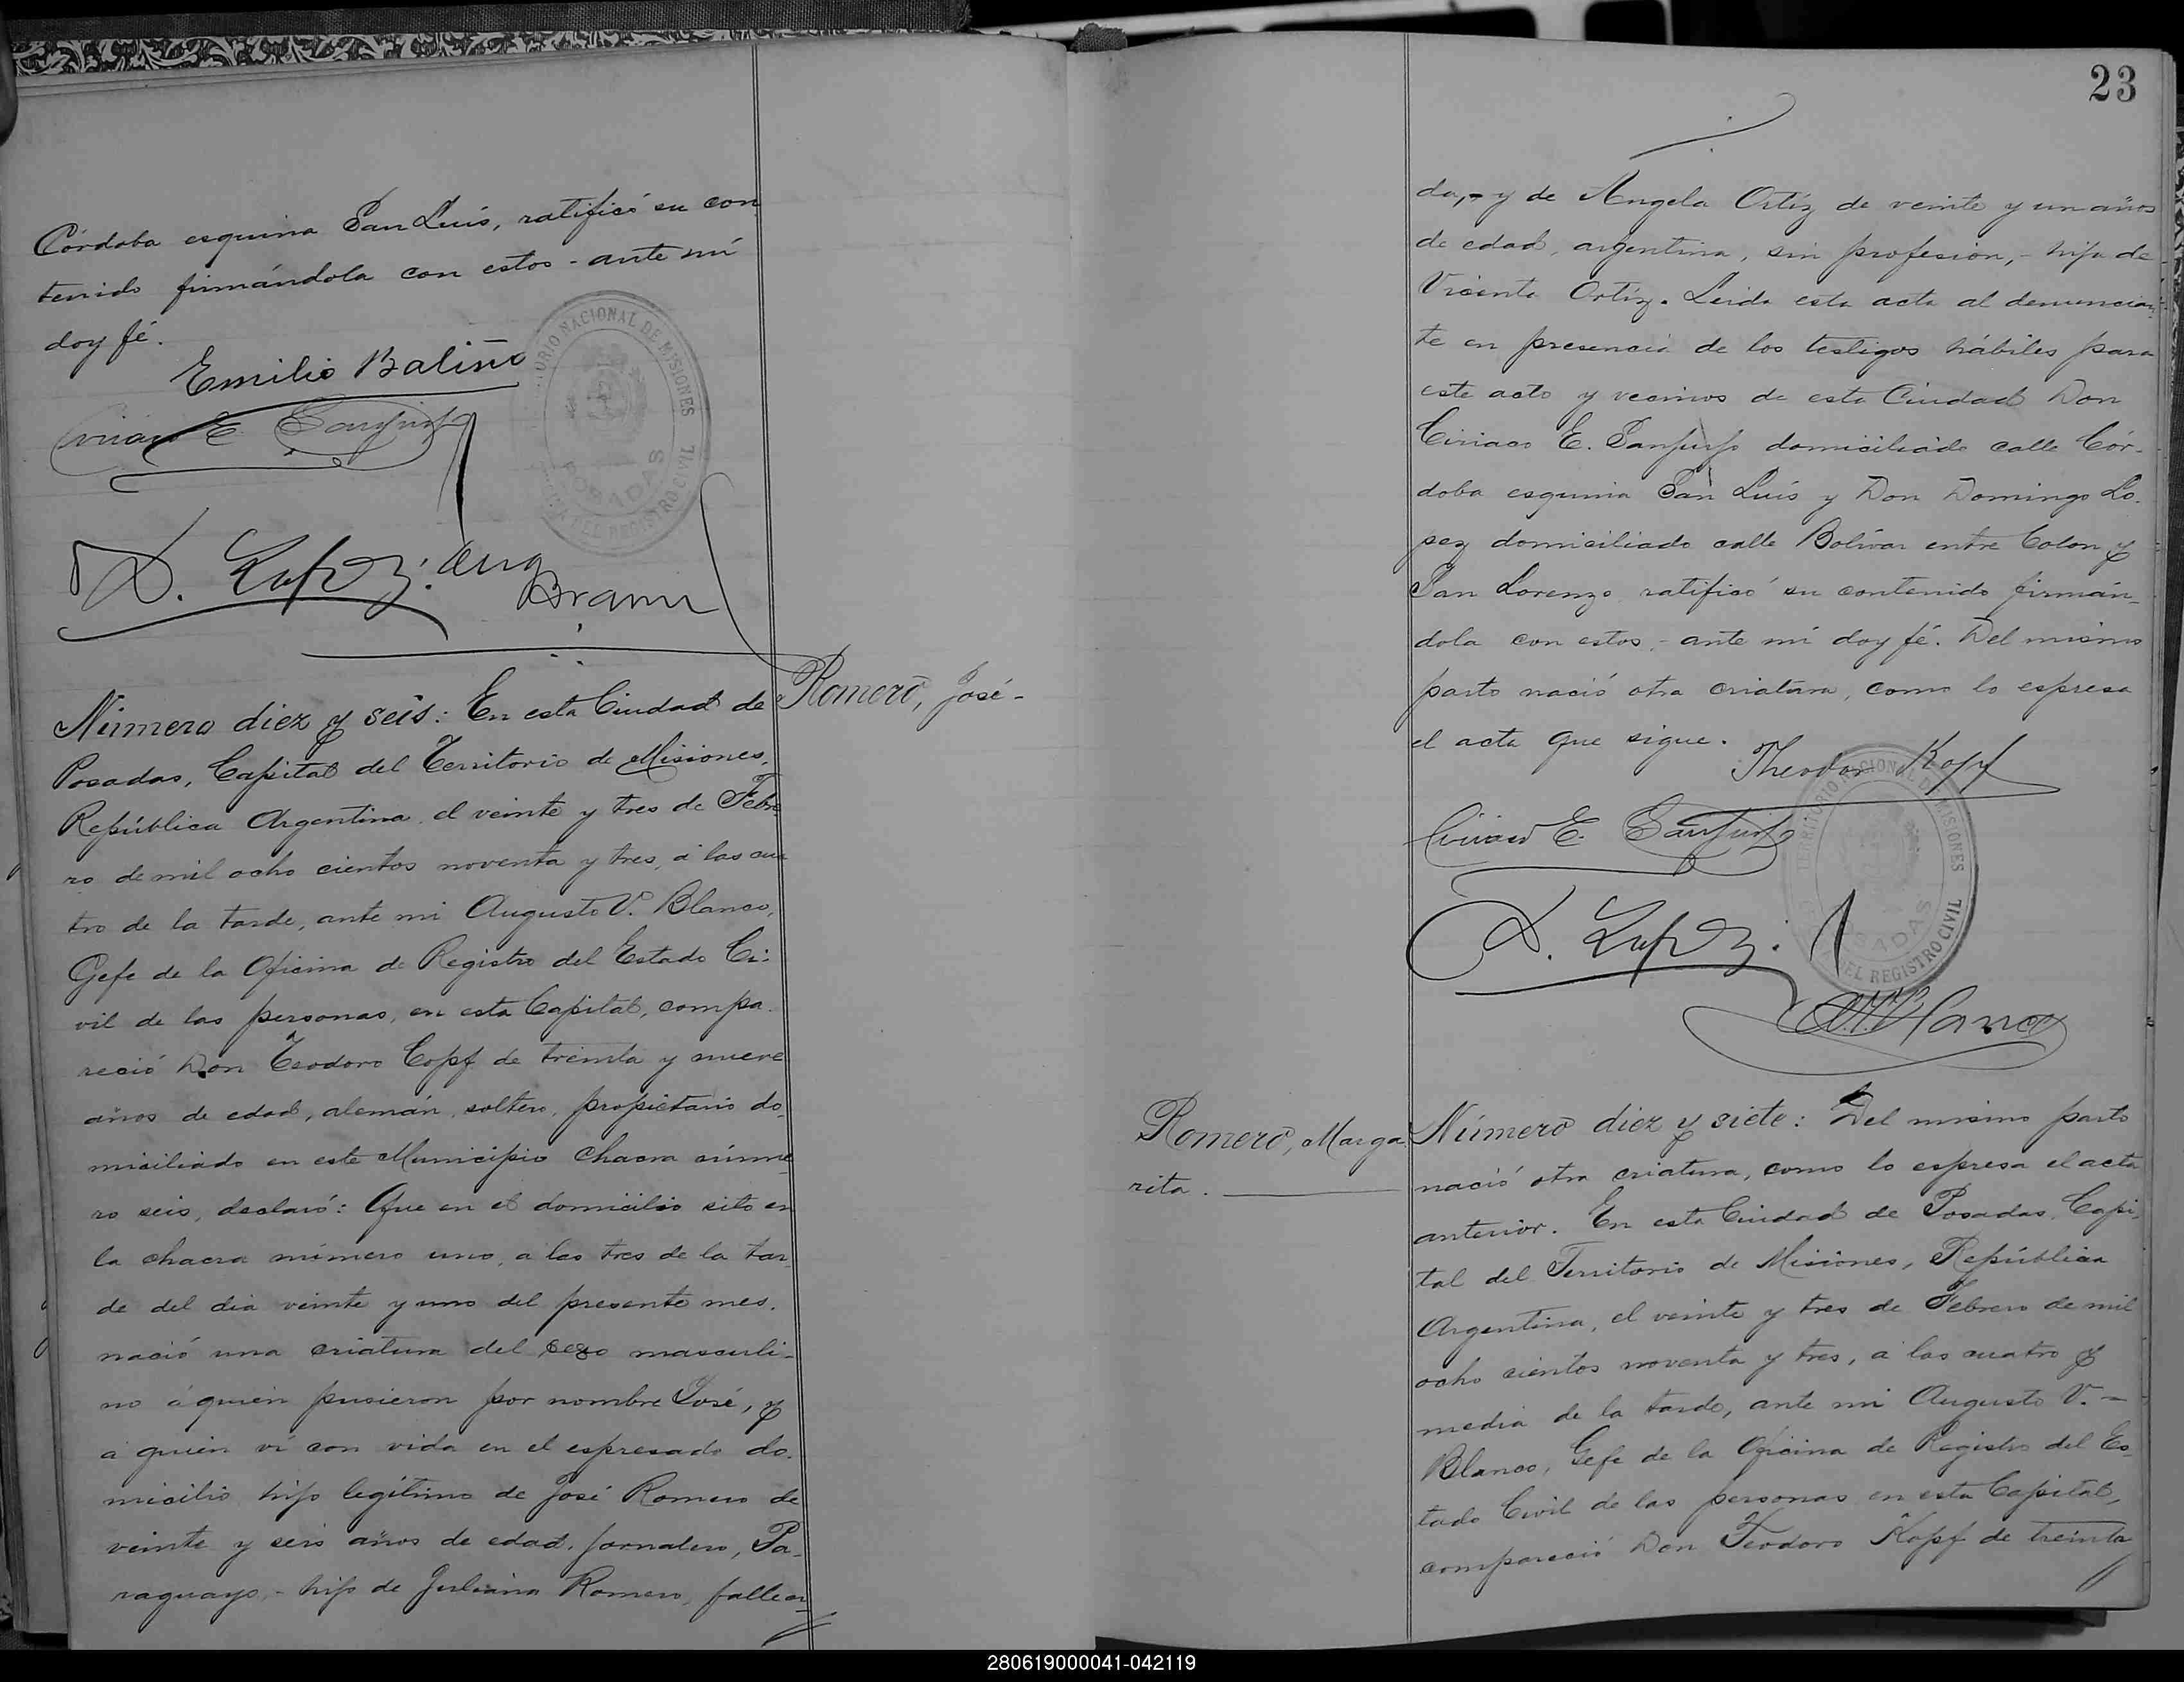 Córdoba esquina San Luís, ratificó su con
tenido firmándola con estos - ante mí
doy fé.
Emilio Baliño
Ciriaco E.
D. Lopez.
TERRITORIO NACIONAL DE MISIONES
POSADAS
DEL REGISTRO CIVIL
Romero, José -
Número diez y seis: En esta Ciudad de
Posadas, Capital del Territorio de Misiones,
República Argentina, el veinte y tres de Febre
ro de mil ocho cientos noventa y tres, á las cua
tro de la tarde, ante mi Augusto V. Blanco,
Gefe de la Oficina de Registro del Estado Ci-
vil de las personas, en esta Capital, compa-
reció Don Teodoro Copf de treinta y nueve
años de edad, alemán, soltero, propietario do-
miciliado en este Municipio Chacra núme
ro seis, declaró: Que en el domicilio sito en
la chacra número uno, a las tres de la tar
de del dia veinte y uno del presente mes,
nació una criatura del sexo masculi-
no á quien pusieron por nombre José, y
a quien ví con vida en el espresado do-
micilio, hijo legítimo de José Romero de
veinte y seis años de edad, jornalero, Pa-
raguayo, - hijo de Juliana Romero, falleci-
23
da, - y de Angela Ortíz de veinte y un años
de edad, argentina, sin profesion, - hija de
Vicenta Ortíz. Leida esta acta al denuncian
te en presencia de los testigos hábiles para
este acto y vecinos de esta Ciudad Don
Ciriaco E. domiciliado calle Cór-
doba esquina San Luís y Don Domingo Lo-
pez domiciliado calle Bolívar entre Colon y
San Lorenzo ratificó su contenido firmán-
dola con estos - ante mí doy fé. Del mismo
parto nació otra criatura, como lo espresa
el acta que sigue.
Theodor Kopf
Ciriaco E.
D. Lopez.
A. V. Blanco
TERRITORIO NACIONAL DE MISIONES
POSADAS
DEL REGISTRO CIVIL
Romero, Marga
rita.
Número diez y siete: Del mismo parto
nació otra criatura, como lo espresa el acta
anterior. En esta Ciudad de Posadas, Capi-
tal del Territorio de Misiones, República
Argentina, el veinte y tres de Febrero de mil
ocho cientos noventa y tres, á las cuatro y
media de la tarde, ante mi Augusto V. -
Blanco, Gefe de la Oficina de Registro del Es-
tado Civil de las personas en esta Capital,
compareció Don Teodoro Kopf de treinta
280619000041-042119